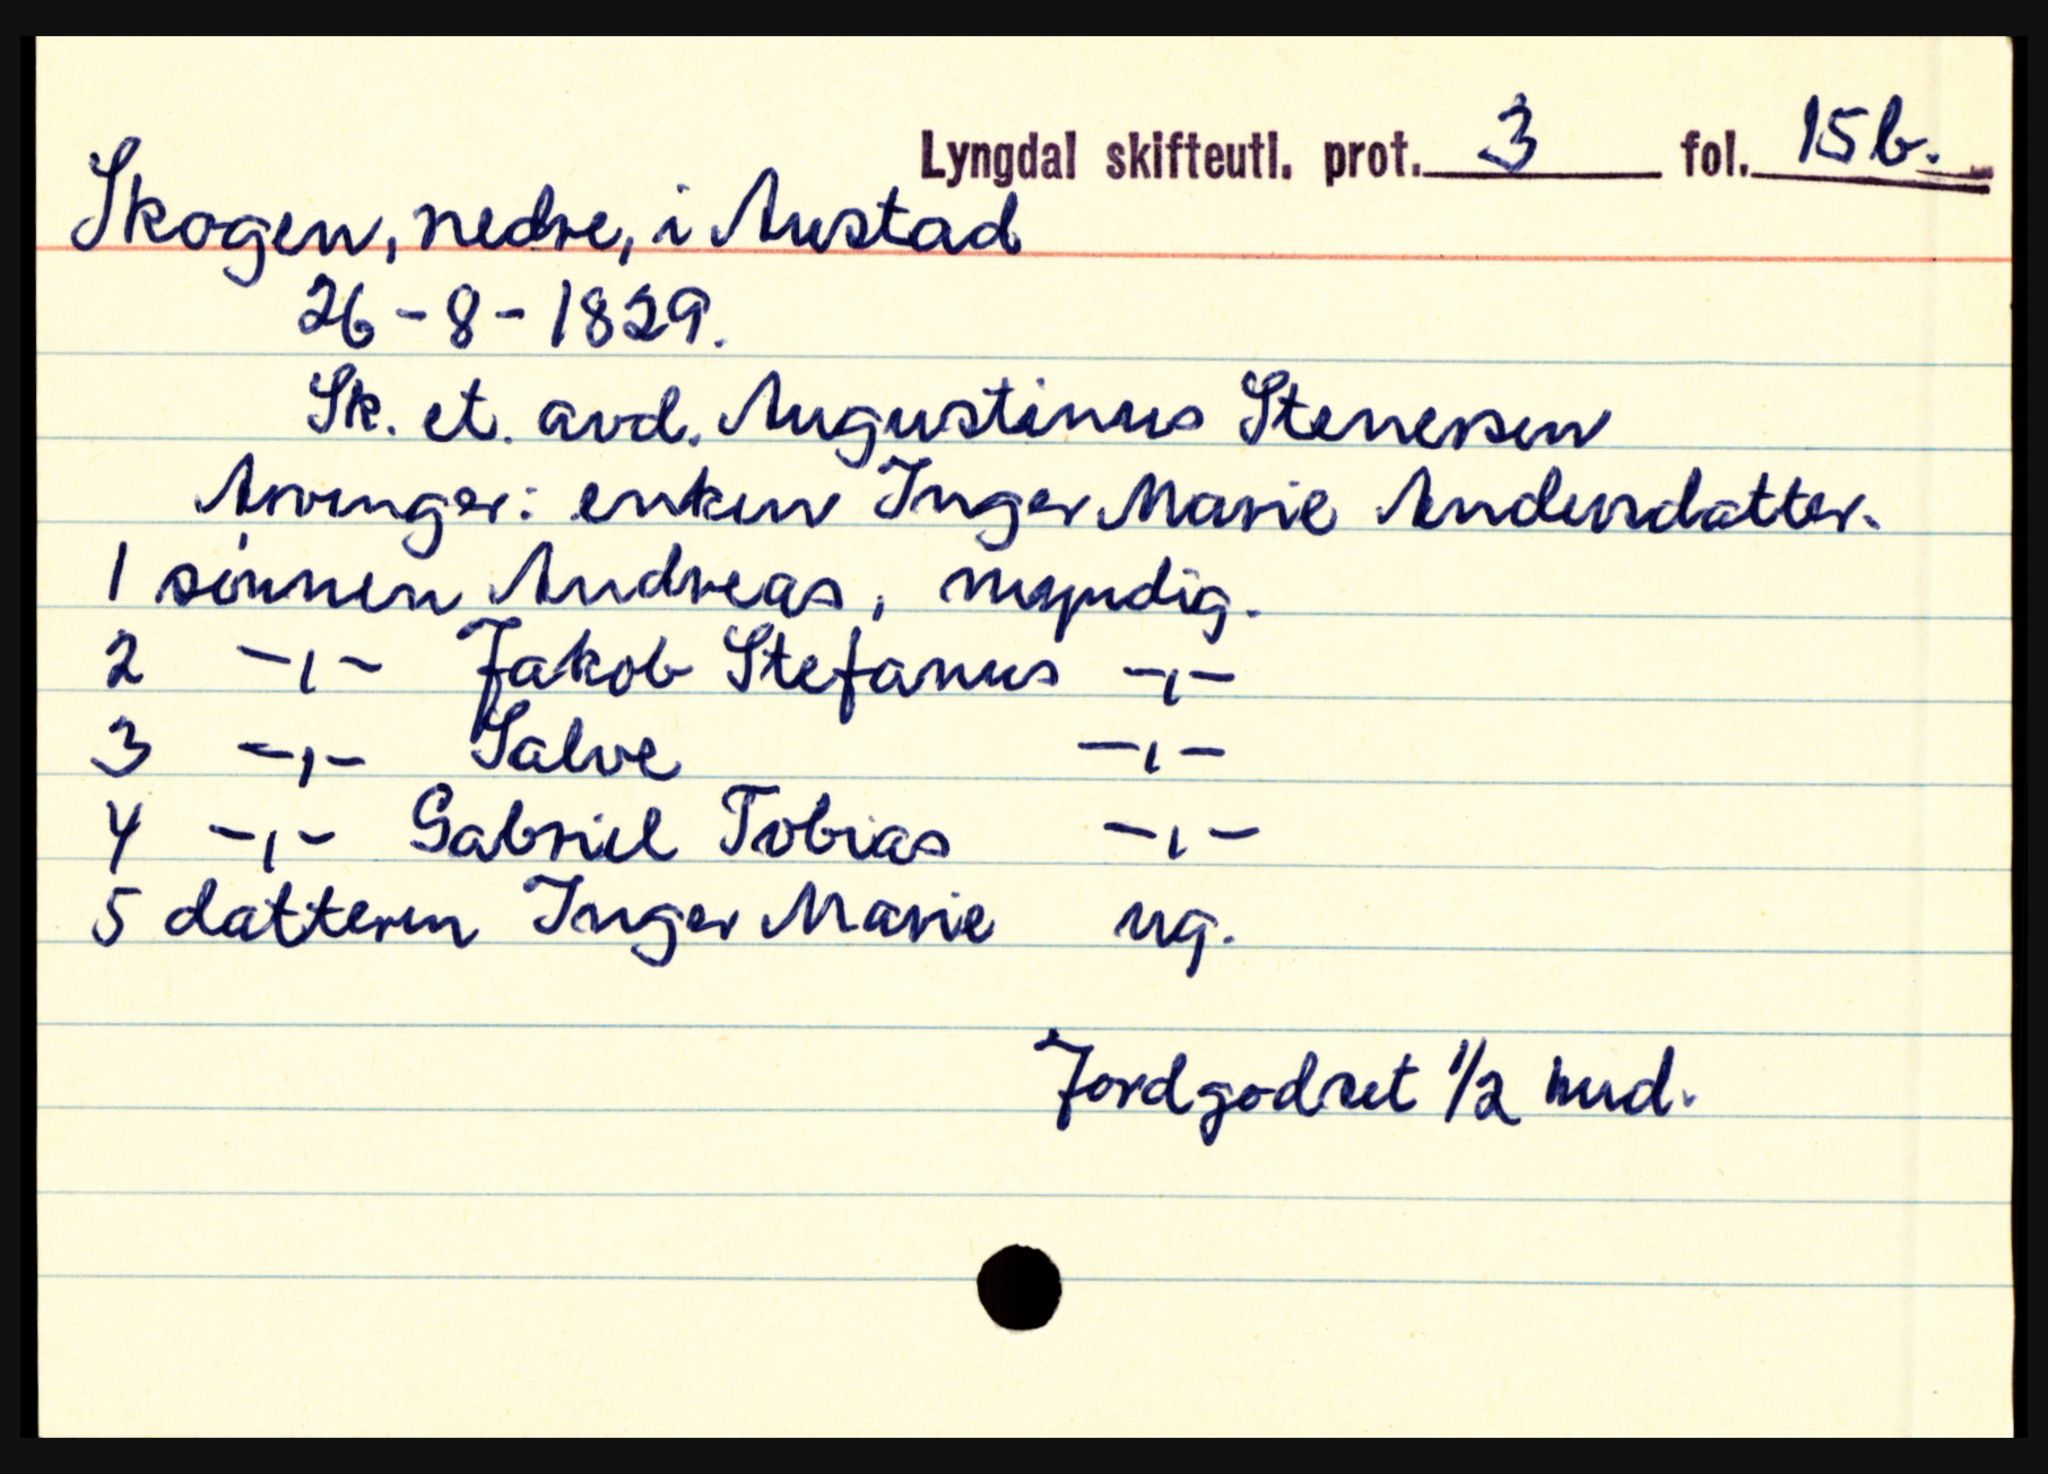 Lyngdal skifteutl. prot. 3 fol. 15b.
Skogen, nedre, i Austad
26-8-1829.
Sk. et. avd. Augustinus Stenersen
Arvinger: enken Inger Marie Andersdatter.
1 sönnen Andreas, myndig.
2 -,- Jakob Stefanus -,-
3 -,- Salve -,-
4 -,- Gabriel Tobias -,-
5 datteren Inger Marie ug.
Jordgodset 1/2 hud.